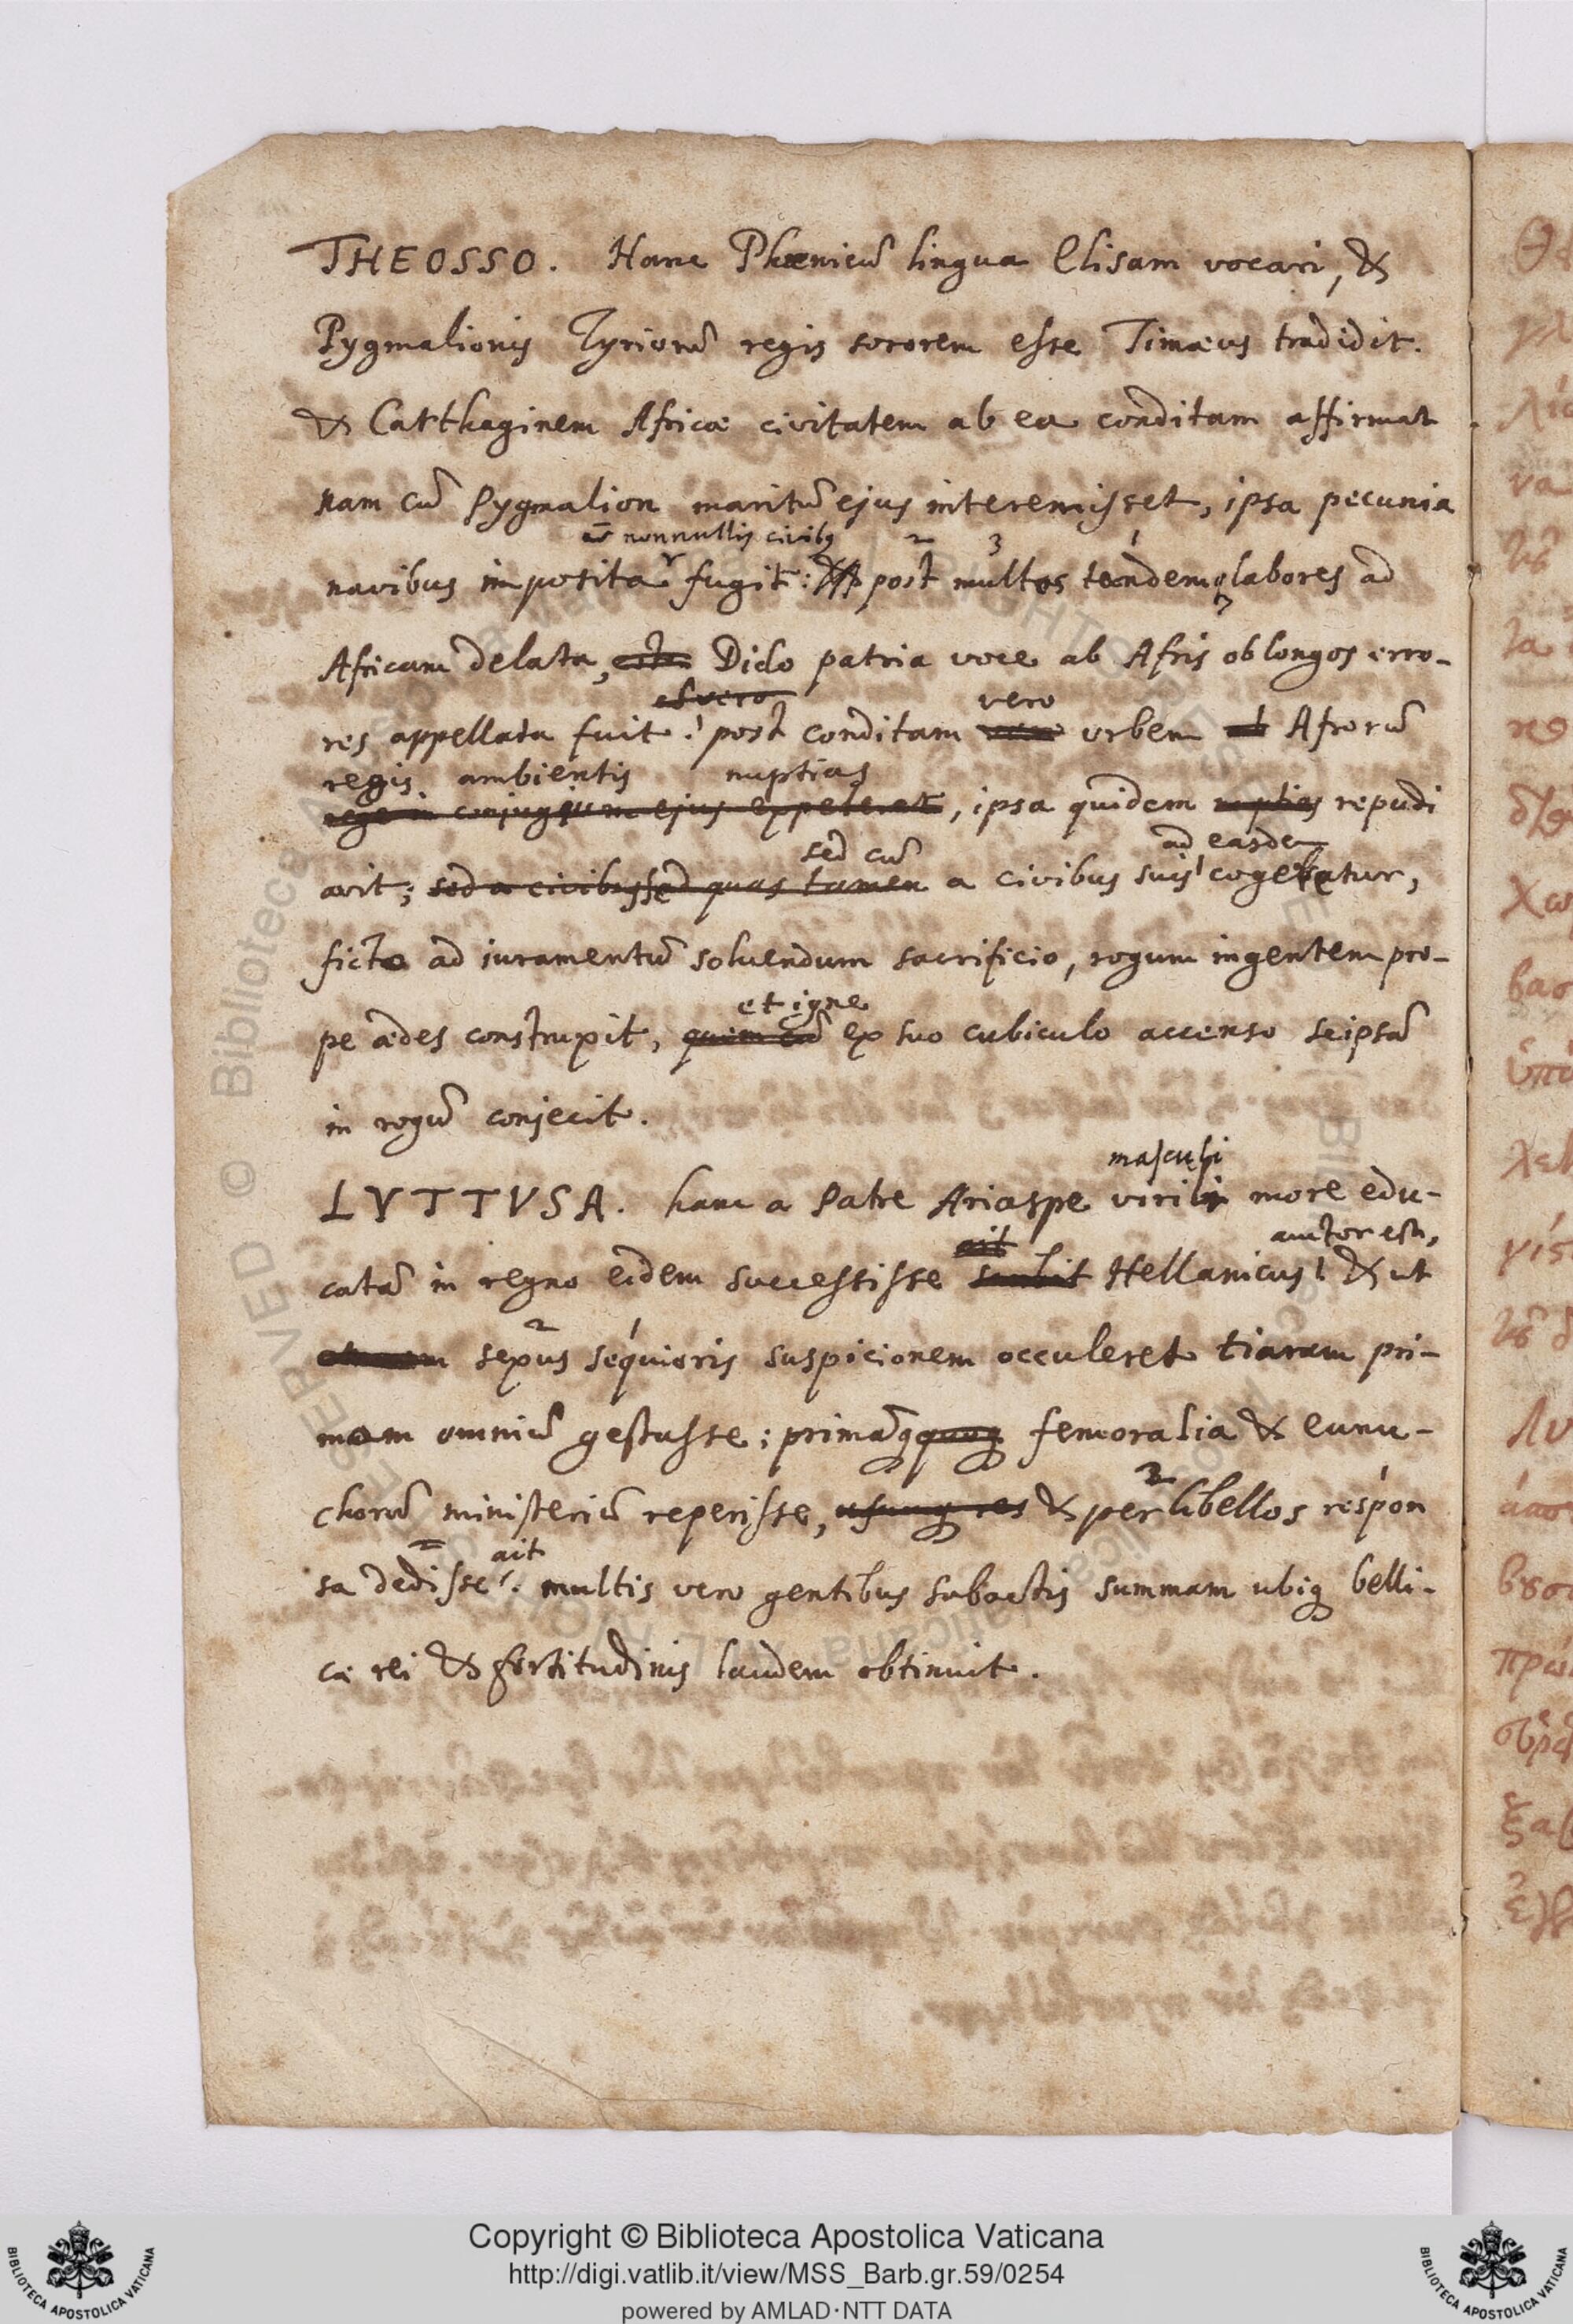 THEOSSO. Hanc Phœnicũ lingua Elisam vocari, &
Pygmalionis Tyriorũ regis sororem esse Timæus tradidit.
& Carthaginem Africæ civitatem ab ea conditam affirmat
nam cũ Pygmalion maritũ ejus interemisset, ipsa pecunia
nonnullis civibꝯ 2 3 1
navibus imposita fugit: post multos tandem labores ad
Africam delata, Dido patria voce ab Afris ob longos erro-
vero vero
res appellata fuit: post conditam urbem ab Afrorũ
regis ambientis nuptias
rege in conjugium ejus expeteret, ipsa quidem nuptias repudi
sed cũ ad easdem
avit; sed a civibus sed quas tamen a civibus suis cogeretur,
ficto ad iuramentũ soluendum sacrificio, rogum ingentem pro-
et igne
pe ædes construxit, ex suo cubiculo accenso seipsã
in rogũ conjecit.
masculi
LVTTVSA. hanc a Patre Ariaspe virili more edu-
ait auctor est,
catã in regno eidem successisse scribit Hellanicus & ut
2 1
sexus sequioris suspicionem occuleret tiaram pri-
mam omniũ gestasse; primãq femoralia & eunu-
3 1
chorũ ministeriũ reperisse, & per libellos respon
2 ait
sa dedisse. multis vero gentibus subactis summam ubiq belli-
cæ rei & fortitudinis laudem obtinuit.
Θε
γλ
λίσ
να
τȣ͂
τα
κο
χω
βασ
ὑπὸ
γίσ
Λυ
ἀπο
βȣσ
πρώ
ξαβ
Copyright © Biblioteca Apostolica Vaticana
http://digi.vatlib.it/view/MSS_Barb.gr.59/0254
powered by AMLAD·NTT DATA
BIBLIOTECA APOSTOLICA VATICANA
BIBLIOTECA APOSTOLICA VATICANA